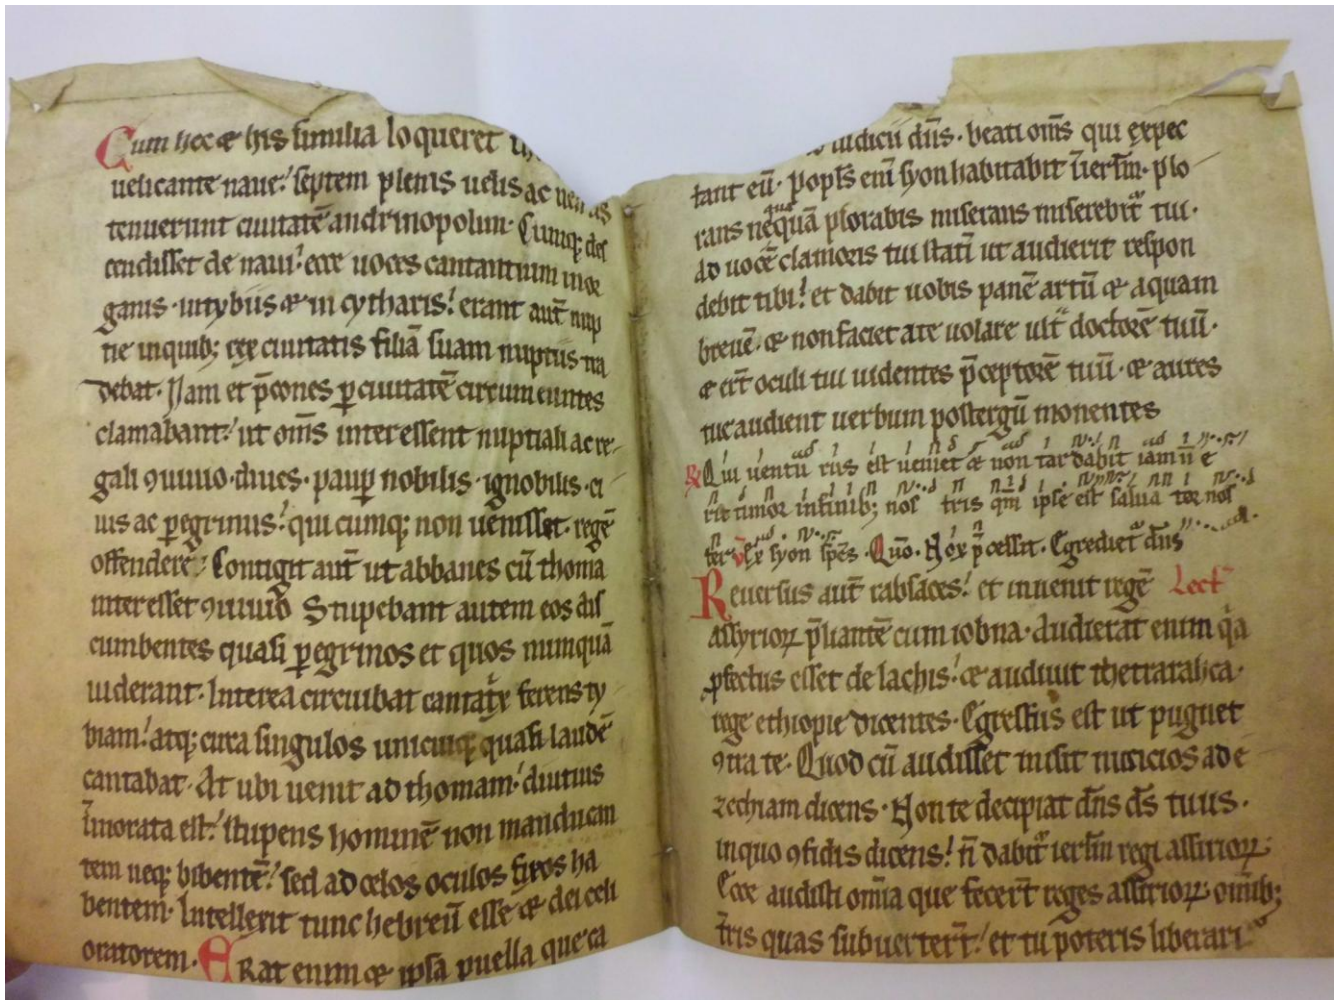 Cum hec & his similia loqueret
uelicante naue:' septem plenis uelis ac uentis
tenuerunt ciuitatē andrinopolim. Cumq; des
cendisset de naui:' ecce uoces cantantium in or
ganis. in tybiis & in cytharis:' erant aut̄ nup
tie in quib; rex ciuitatis filiā suam nuptiis tra
debat. Nam et p̄cones ꝑ ciuitatē circumeuntes
clamabant:' ut om̄s interessent nuptiali ac re-
gali ꝯuiuio. diues. paup̱ nobilis. ignobilis. ci
uis ac ꝑegrinus:' quicumq; non uenisset. regē
offenderē:' Contigit aut̄ ut abbanes cū thoma
interesset ꝯuiuio Stupebant autem eos dis
cumbentes quasi ꝑegrinos et quos numquā
uiderant. Interea circuibat cantatᷣx ferens ty
biam:' atq; circa singulos unicuiq; quasi laudē
cantabat. At ubi uenit ad thomam:' diutius
īmorata est:' stupens hominē non manducan
tem neq; bibentē:' sed ad celos oculos fixos ha
bentem. Intellexit tunc hebreū esse & dei celi
oratorem. ERat enim & ipsa puella que ca
iudicii dn̄s. beati om̄s qui expec
tant eū. Popl̄s eni syon habitabit ī ierl̄m. plo
rans neq̄quā plorabis miserans miserebitᷣ tui.
Ad uocē clamoris tui statī ut audierit respon
debit tibi:' et dabit uobis panē artū & aquam
breuē. & non faciet a te uolare ult᷑ doctorē tuū.
& erт̄ oculi tui uidentes p̄ceptorē tuū. & aures
tue audient uerbum post ergū monentes
℟ Qui uentu rus est ueniet & non tardabit iam n̄ e
rit timor in finib; nos tris qm̄ ipse est salua tor nos
ter ℣ Ex syon sp̄es. Quō. Nox p̄cessit. Egredietᷣ dn̄s
Reuersus aut̄ rabsaces:' et inuenit regē Lect̄
assyrioꝝ p̄liantē cum lobna. Audierat enim qᷓ
ꝓfectus esset de lachis:' & audiuit thettarahca.
rege ethiopie dicentes. Egressus est ut pugnet
ꝯtra te. Quod cū audisset misit nuncios ad e
zechiam dicens. Non te decipiat dn̄s ds̄ tuus.
in quo ꝯfidis dicens:' n̄ dabitᷣ ierl̄m regi assirioꝝ.
Ecce audisti om̄ia que fecer̄t reges assirioꝝ om̄ib;
t̄ris quas subuerter̄t:' et tu poteris liberari